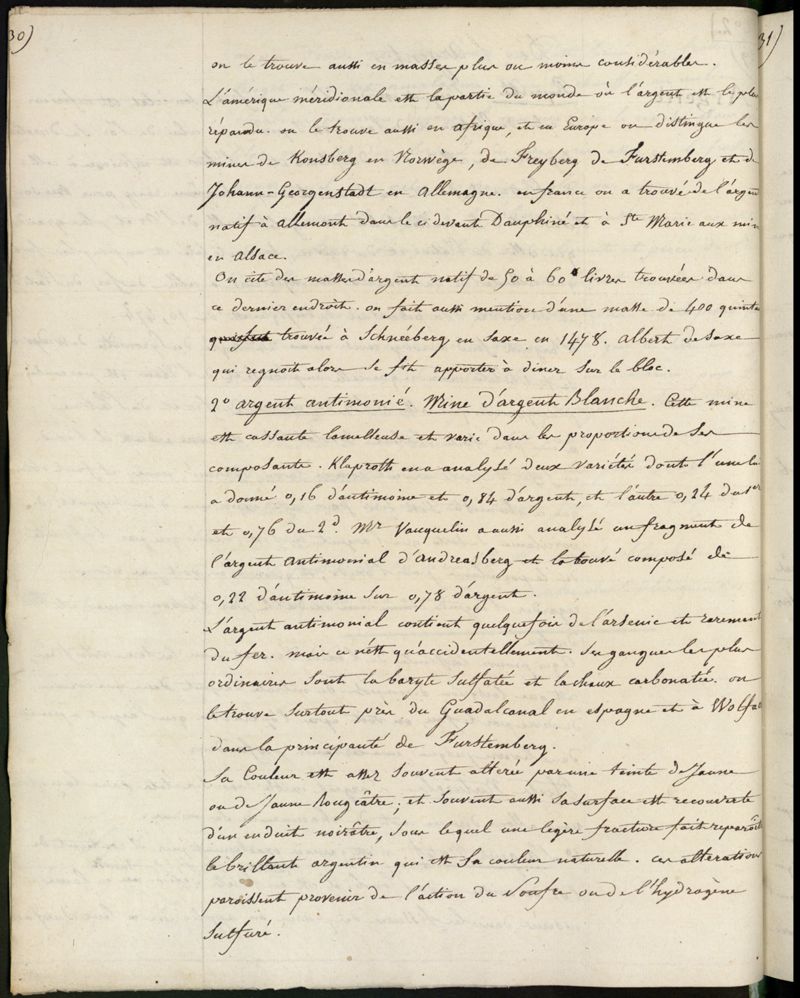 30)
31)
on le trouve aussi en masses plus ou moins considérables.
L'amérique méridionale est la partie du monde où l'argent est le plus
répandu. on le trouve aussi en afrique, et en Europe on distingue les
mines de Konsberg en Norwège, de Freyberg de Furstemberg et de
Johann-Georgenstadt en allemagne. en france on a trouvé de l'argen
natif à allemont dans le ci devant Dauphiné et à Ste Marie aux min
en alsace.
On cite des masses d'argent natif de 50 à 60 livres trouvées dans
ce dernier endroit. on fait aussi mention d'une masse de 400 quinta
trouvée à Schnéeberg en saxe en 1478. albert de saxe
qui regnoit alors se fit apporter à diner sur le bloc.
2° argent antimonié. Mine d'argent Blanche. Cette mine
est cassante lamelleuse et varie dans les proportions de ses
composants. Klaproth en a analysé deux variétés dont l'une lui
a donné 0,16 d'antimoine et 0,84 d'argent, et l'autre 0,24 du 1er
et 0,76 du 2d. Mr Vauquelin a aussi analysé un fragment de
l'argent antimonial d'andreasberg et l'a trouvé composé de
0,22 d'antimoine sur 0,78 d'argent.
L'argent antimonial contient quelquefois de l'arsenic et rarement
du fer. mais ce n'est qu'accidentellement. Ses gangues les plus
ordinaires sont la baryte sulfatée et la chaux carbonatée. on
le trouve surtout près du Guadalcanal en espagne et à Wolfac
dans la principauté de Furstemberg.
Sa Couleur est assez souvent altérée par une teinte de Jaune
ou de Jaune Rougeâtre; et souvent aussi sa surface est recouverte
d'un enduit noirâtre, sous lequel une legère fracture fait reparoît
le brillant argentin qui est sa couleur naturelle. ces altérations
paroissent provenir de l'action du Soufre ou de l'hydrogène
sulfuré.